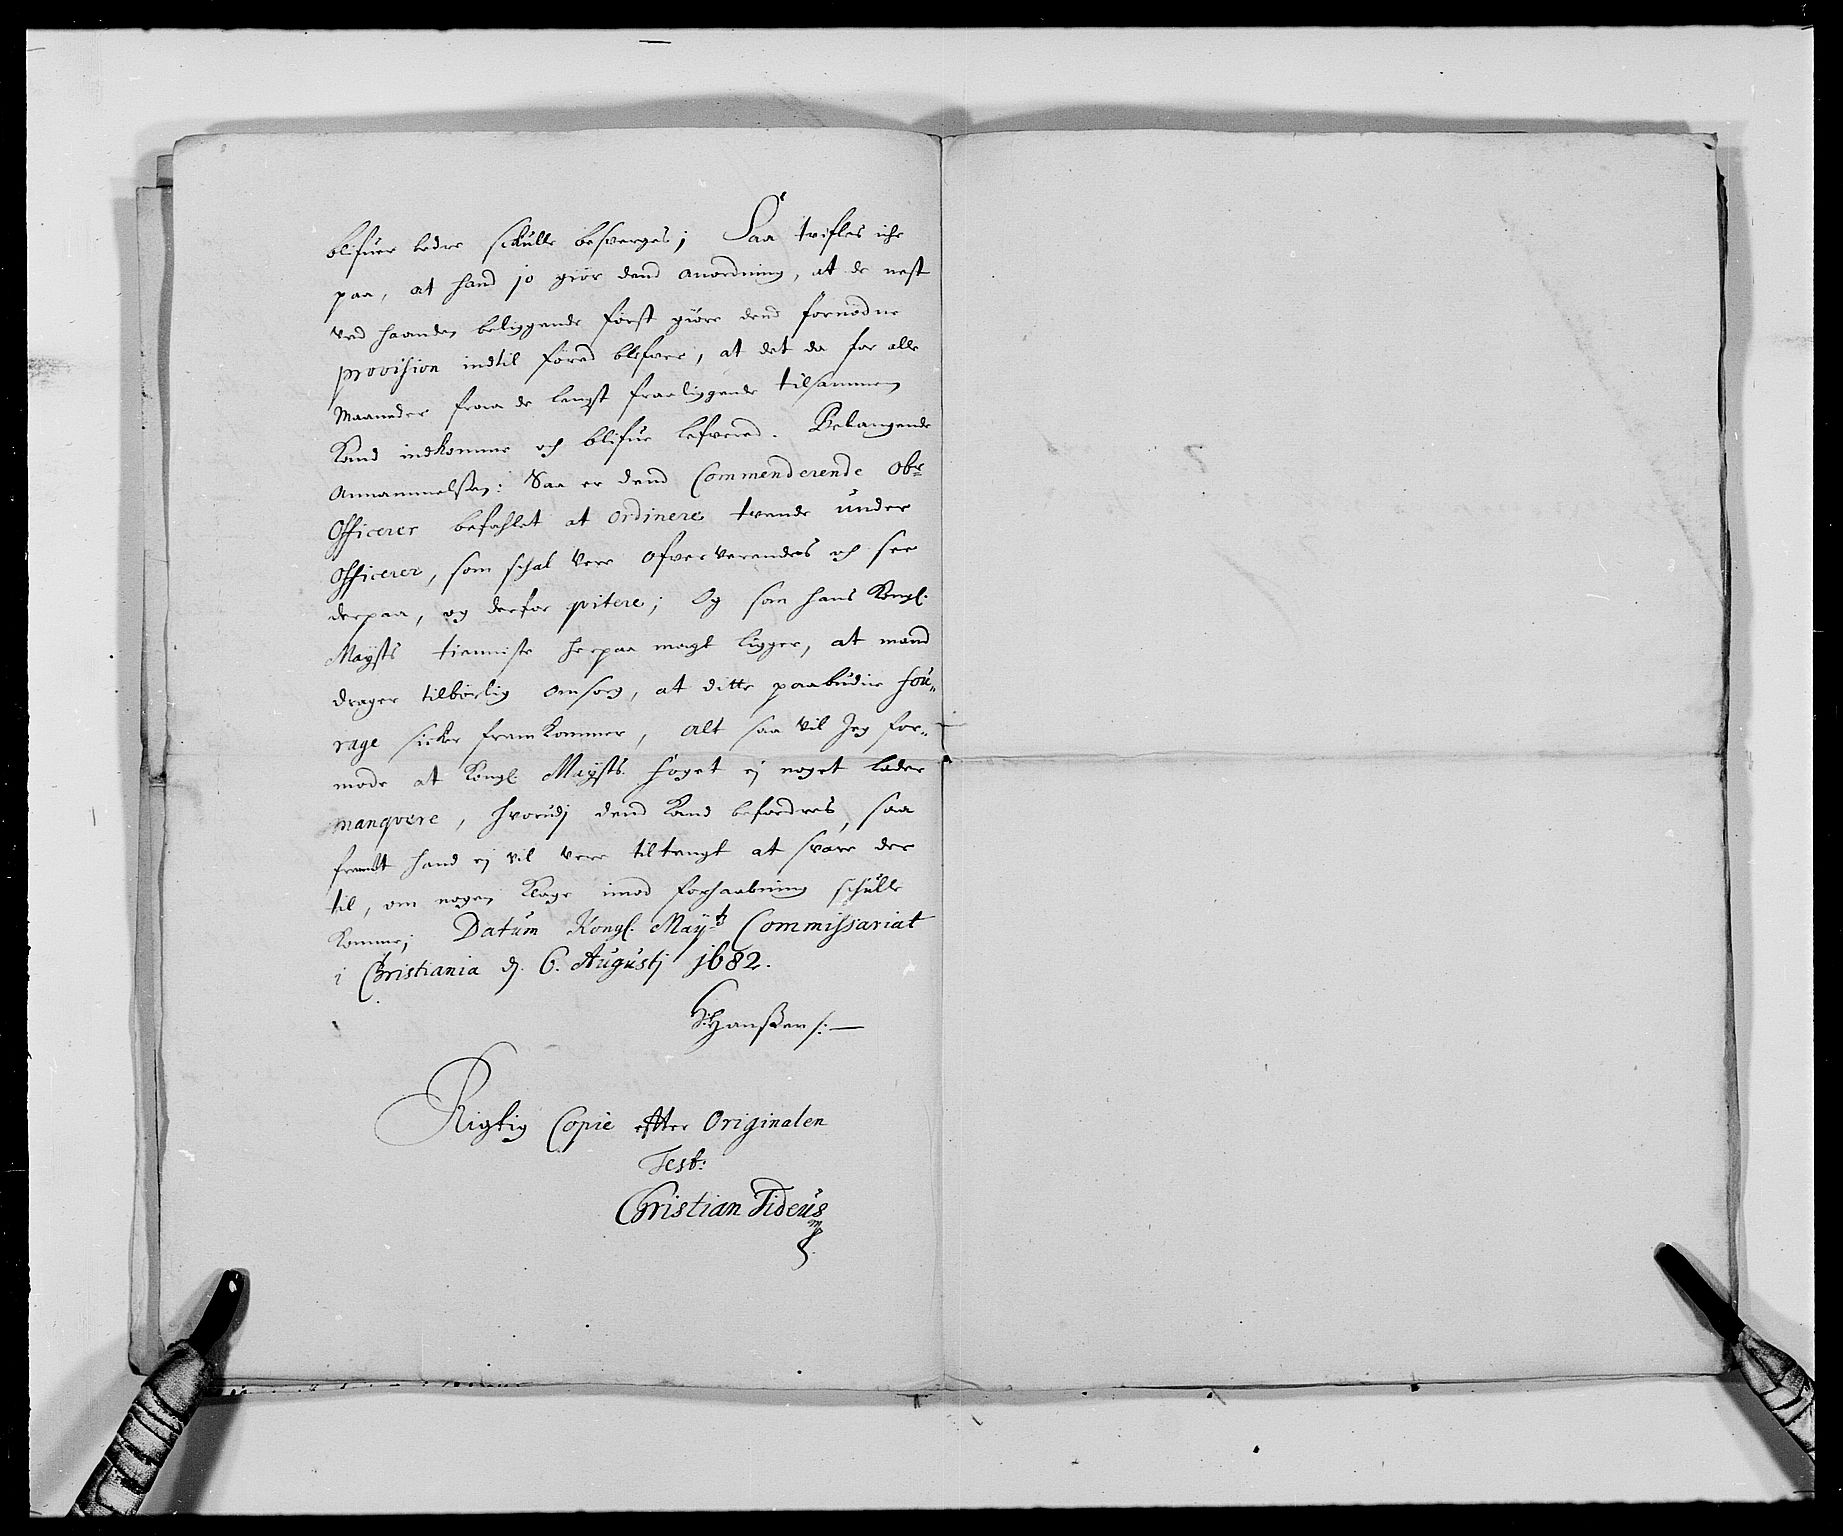 blifuer bedre schulle besverges; Saa tvifles iche
paa, at hand jo giør dend anordning, at de nest
ved haanden beliggende først giøre dend fornødne
provision indtil føred blifver, at det da for alle
Maaneder fraa de lengst fraaliggende tilsammen
Kand indkomme och blifue lefvered. Belangende
Annammelsen: Saa er dend Commenderende obr
Officerer befahlet at ordinere tvende under
Officerer, som schal vere ofververendes och see
derpaa, og derfor qvitere; Og som hans Kongl.
Maysts tienniste herpaa magt ligger, at mand
drager tilbørlig omsorg, at ditte paabudne fou„
rage sicker fremkommer, alt saa vil Jeg for„
mode at Kongl Maysts foget ej noget lader
manqvere, hvorudj dend Kand befordres, saa
fremt hand ej vil vere tiltengt at svare der
til, om nogen Klage imod forhaabning schulle
Komme; Datum Kongl. Mayts Commissariat
i Christiania d. 6. Augustj 1682.
Hanssen /:
Rigtig Copie effter Originalen
Test:
Christian Tideus
mp